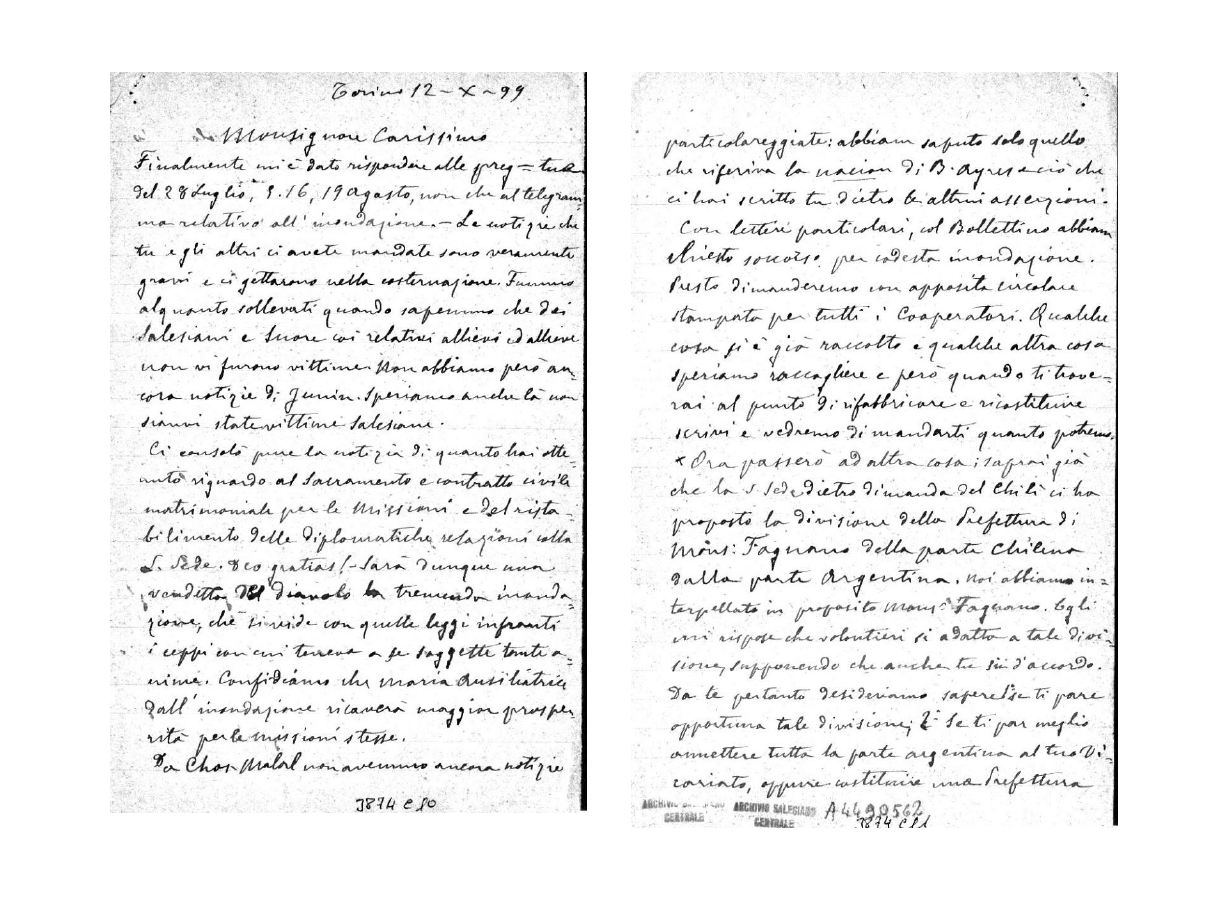 Torino 12 - X - 99
Monsignore Carissimo
Finalmente mi è dato rispondere alle preg = tue
del 28 Luglio, 16, 19 Agosto, non che al telegram=
ma relativo all' inondazione. - Le notizie che
tu e gli altri ci avete mandate sono veramente
gravi e ci gettarono nella costernazione. Fummo
alquanto sollevati quando sapemmo che dei
Salesiani e Suore coi relativi allievi ed allieve
non vi furono vittime. Non abbiamo però an=
cora notizie di Junin. Speriamo anche là non
sianvi state vittime Salesiane.
Ci consolò pure la notizia di quanto hai otte=
nuto riguardo al Sacramento e contratto civile
matrimoniale per le Missioni e del rista-
bilimento delle diplomatiche relazioni colla
S. Sede. Deo gratias! - Sarà dunque una
vendetta del diavolo la tremenda inonda-
zione, che si vide con quelle leggi infranti
i ceppi con cui teneva a se soggette tante a-
nime. Confidiamo che Maria Ausiliatrice
dall' inondazione ricaverà maggior prospe
rità per le Missioni stesse.
Da Chos-Malal non avemmo ancora notizie
3874 C 10
particolareggiate: abbiam saputo solo quello
che riferiva la nacion di B. Ayres e ciò che
ci hai scritto tu dietro le altrui asserzioni.
Con lettere particolari, col Bollettino abbiam
chiesto soccorso per codesta inondazione.
Presto dimanderemo con apposita circolare
stampata per tutti i Cooperatori. Qualche
cosa si è già raccolto e qualche altra cosa
speriamo raccogliere e però quando ti trove-
rai al punto di rifabbricare e ricostituire
scrivi e vedremo di mandarti quanto potremo.
x Ora passerò ad altra cosa; saprai già
che la S. Sede dietro dimanda del Chilì ci ha
proposto la divisione della Prefettura di
Mons: Fagnano della parte Chilena
dalla parte Argentina. Noi abbiamo in=
terpellato in proposito Mons: Fagnano. Egli
mi rispose che volontieri si adatta a tale divi-
sione, supponendo che anche tu sii d'accordo.
Da te pertanto desideriamo sapere 1° se ti pare
opportuna tale divisione; 2° Se ti par meglio
annettere tutta la parte argentina al tuo Vi-
cariato, oppure costituire una Prefettura
ARCHIVIO SALESIANO
CENTRALE
ARCHIVIO SALESIANO
CENTRALE
A4490562
3874 C 11